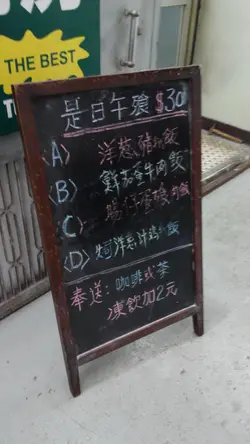 THE BEST
是日午飧 $30
(A) 洋葱豬扒飯
(B) 鮮茄牛肉飯
C) 腸仔蛋飯
(D) 洋葱汁飯
奉送：咖啡或茶
凍飲加2元